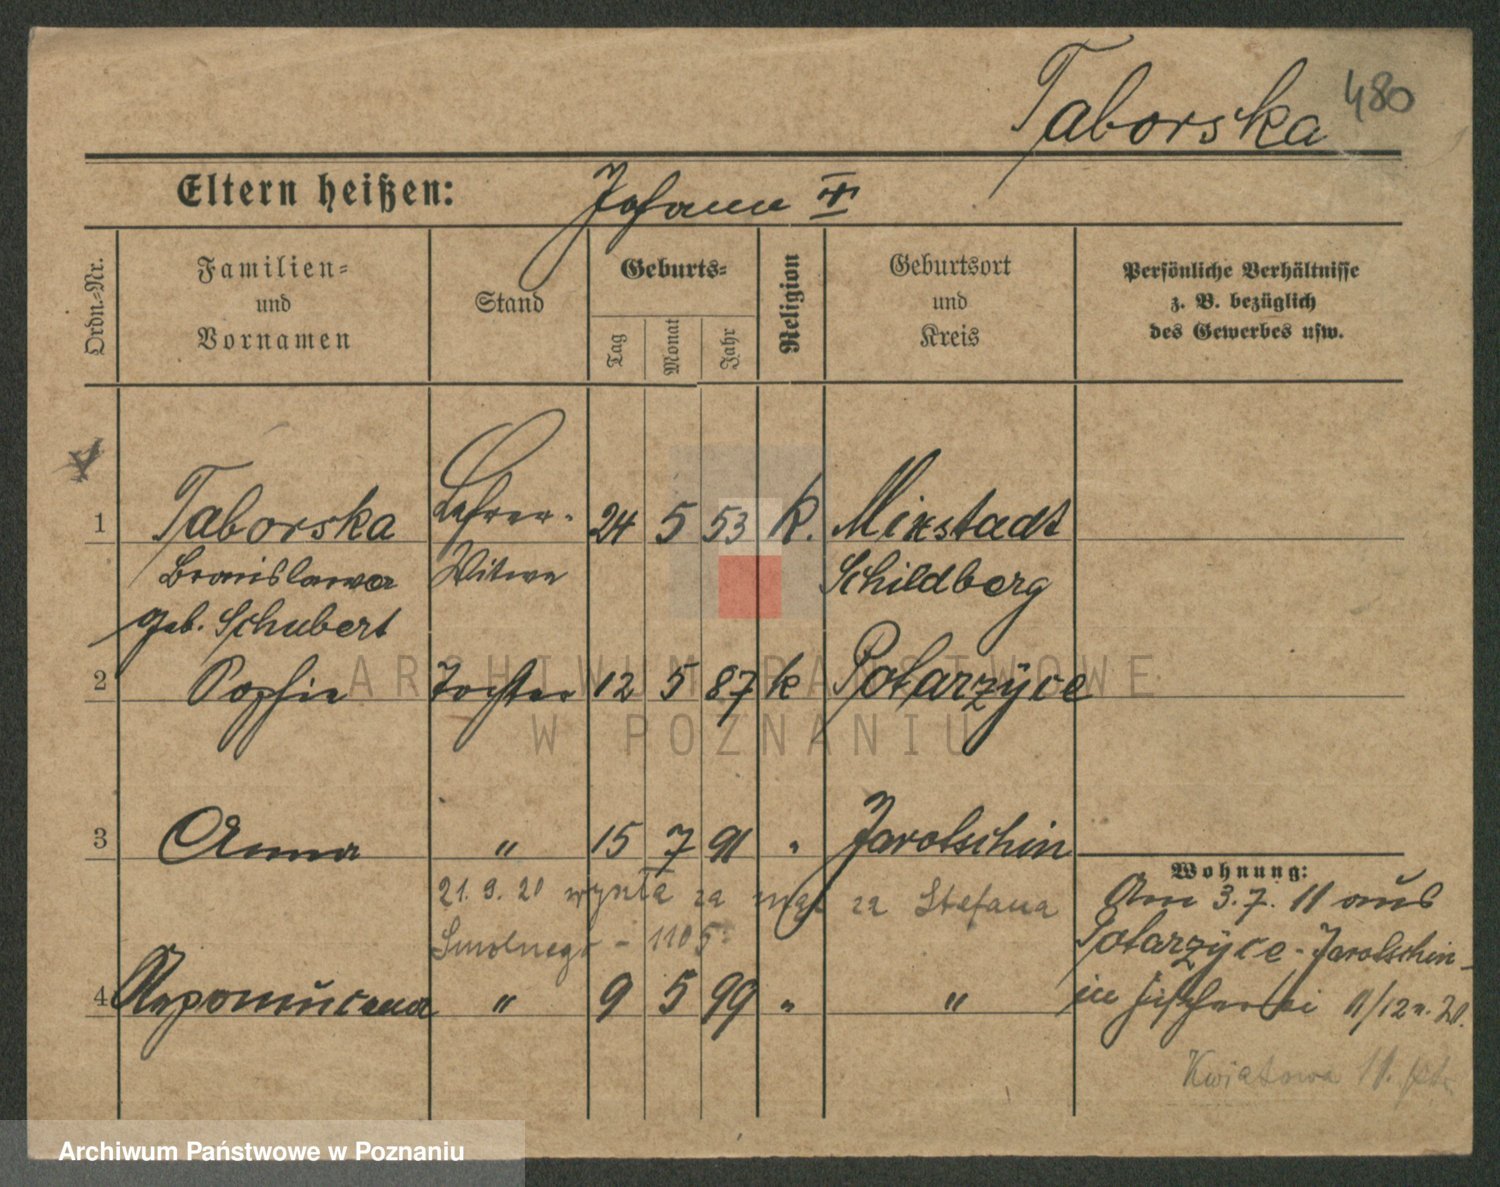 Taborska 480
Eltern heißen: Johann T
Ordn.-Nr.
Familien-
und
Vornamen
Stand
Geburts-
Tag
Monat
Jahr
Religion
Geburtsort
und
Kreis
Persönliche Verhältnisse
z. B. bezüglich
des Gewerbes usw.
1 Taborska Lehrer- 24 5 53 k. Mixstadt
Bronislawa Witwe Schildberg
geb. Schubert
2 Sophie Tochter 12 5 87 k Potarzyce
3 Anna " 15 7 91 " Jarotschin
21. 9. 20 wyszła za mąż za Stefana
Smolnego - 1105
4 Nepomucena " 9 5 99 " "
Wohnung:
Am 3. 7. 11 aus
Potarzyce - Jarotschin -
in 11/12
Kwiatowa 11.
ARCHIWUM PAŃSTWOWE
W POZNANIU
Archiwum Państwowe w Poznaniu